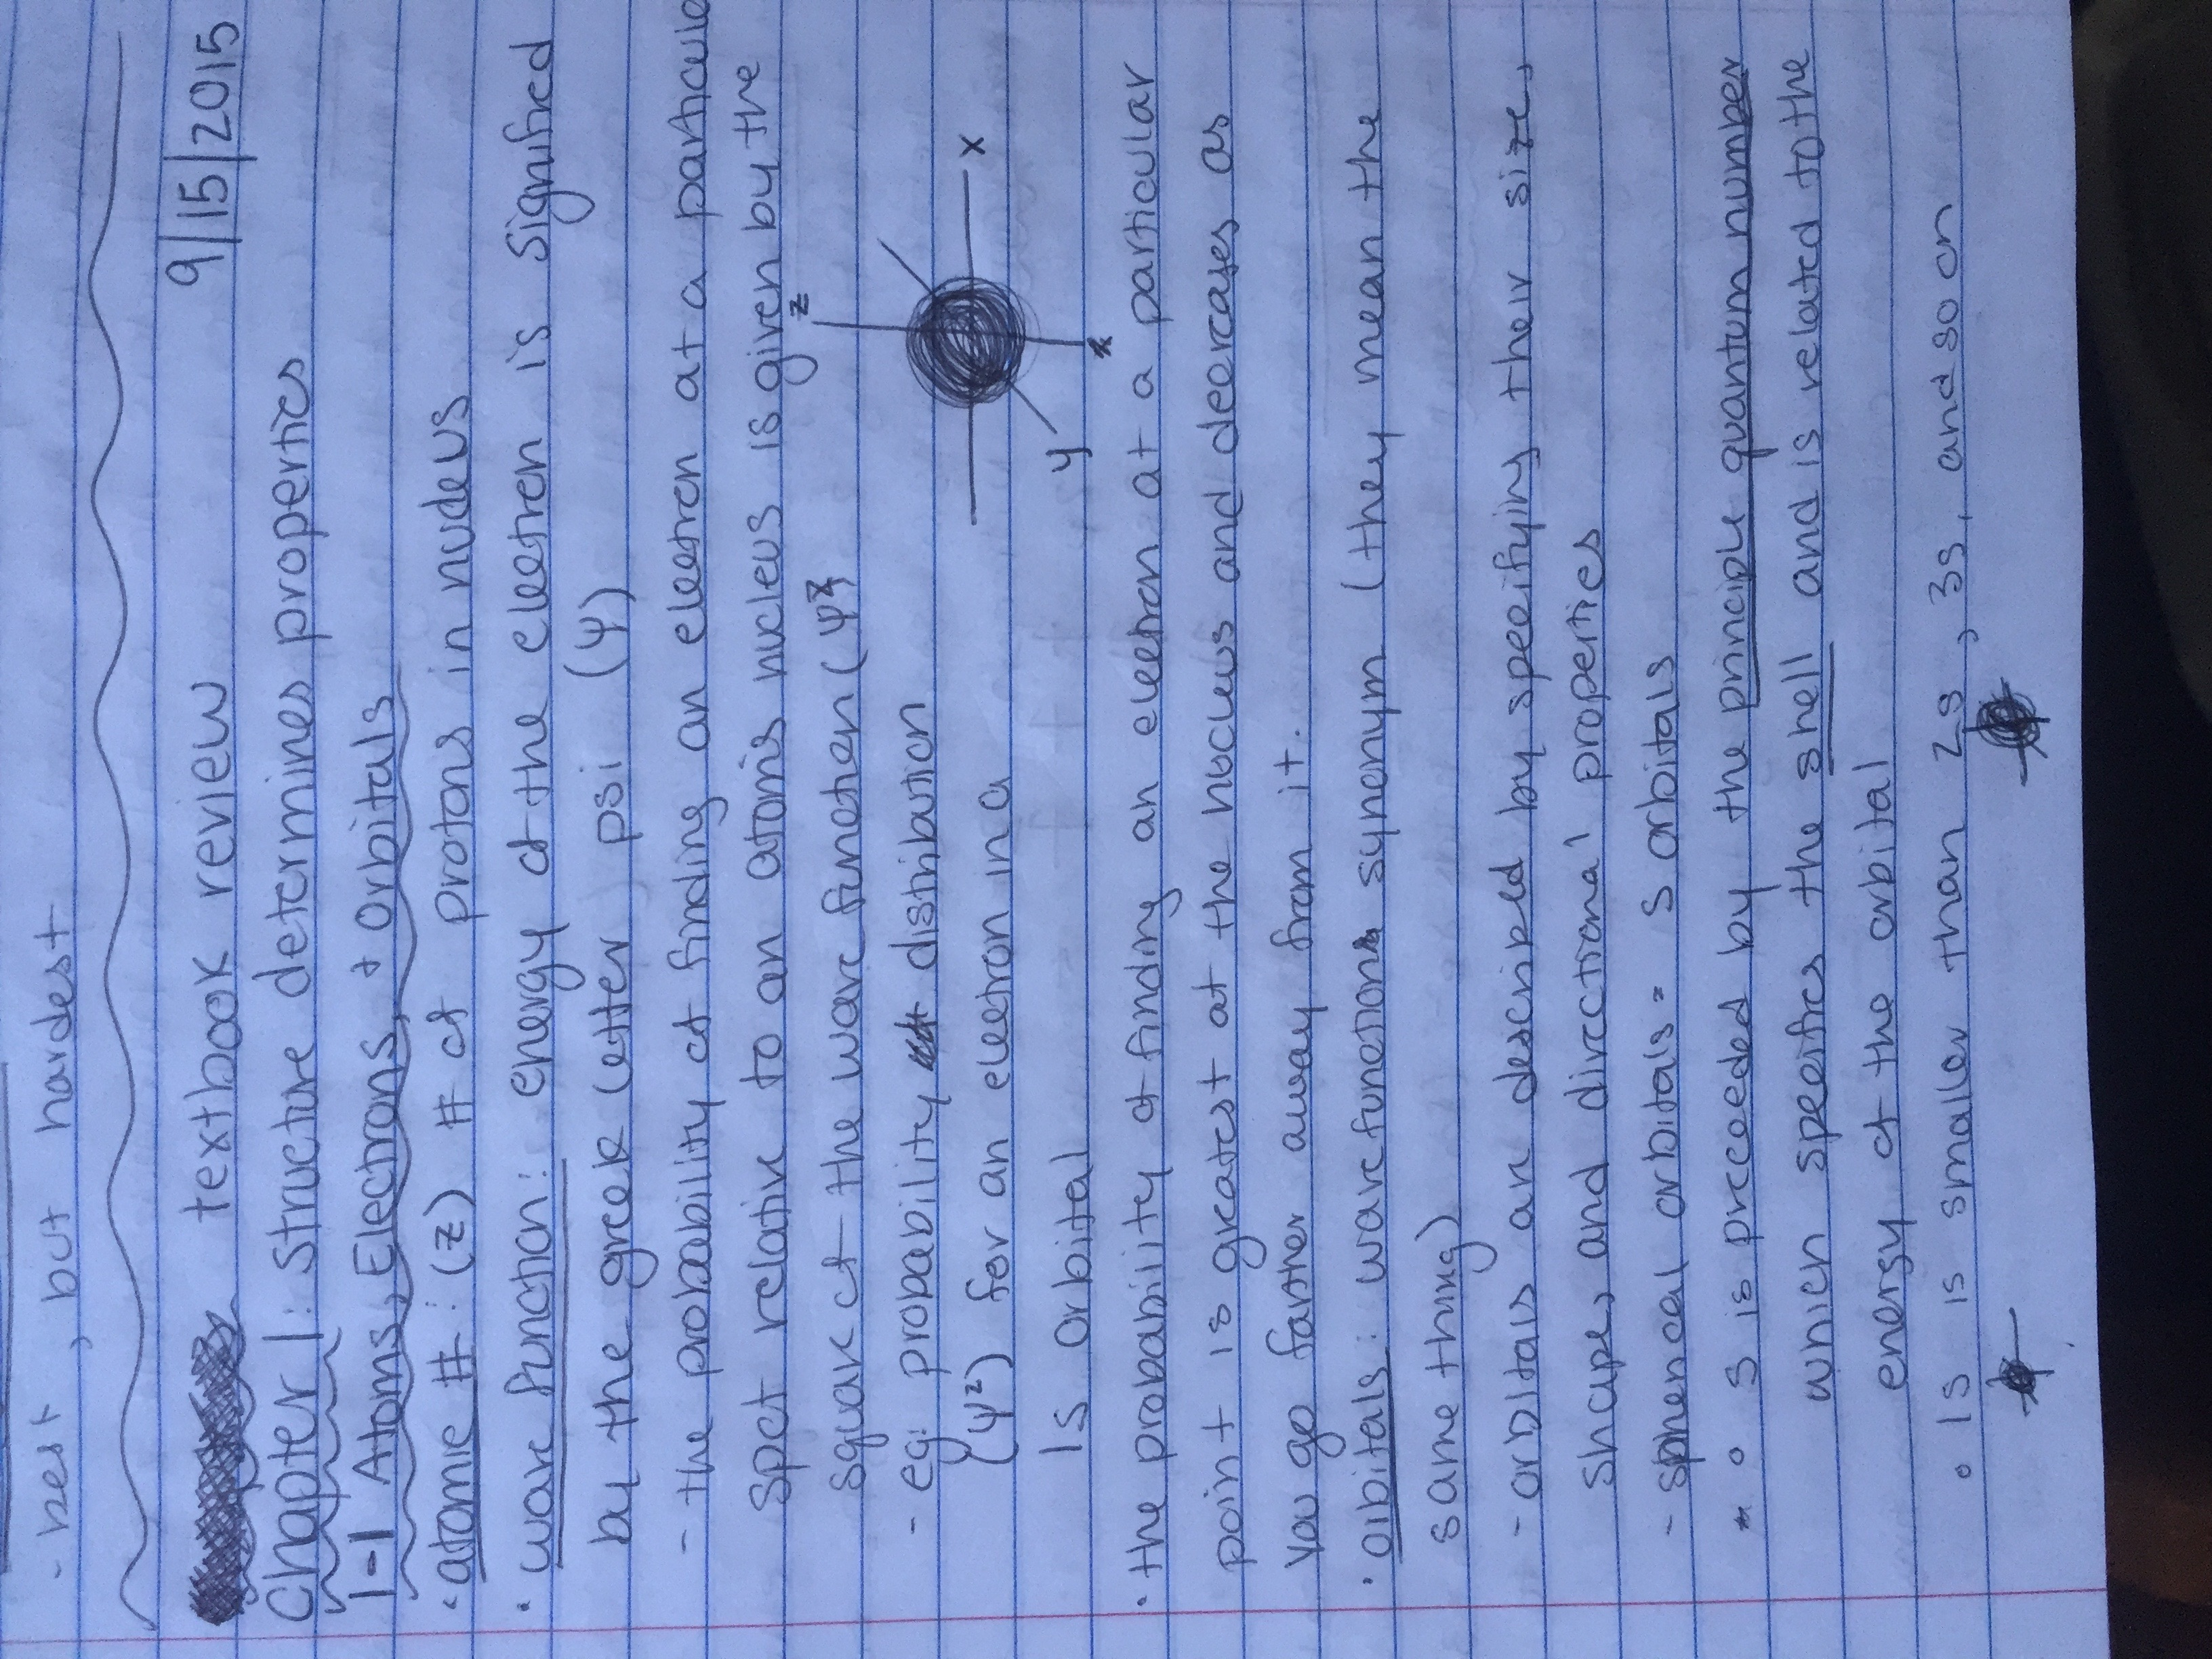 - best, but hardest
textbook review 9/15/2015
Chapter 1: Structure determines properties
1-1 Atoms, Electrons, + Orbitals
· atomic #: (z) # of protons in nucleus
· wave function: energy of the electron is signified
by the greek letter psi (ψ)
- the probability of finding an electron at a particular
spot relative to an atoms nucleus is given by the
square of the wave function (ψ²)
- eg. probability distribution
(ψ²) for an electron in a
1s orbital
z
x
y
x
· the probability of finding an electron at a particular
point is greatest at the nucleus and decreases as
you go farther away from it.
· orbitals: wavefunctions synonym (they mean the
same thing)
- orbitals are described by specifying their size,
shape, and directional properties
- spherical orbitals = s orbitals
* ° s is preceeded by the principle quantum number
which specifies the shell and is related to the
energy of the orbital
° 1s is smaller than 2s, 3s, and so on